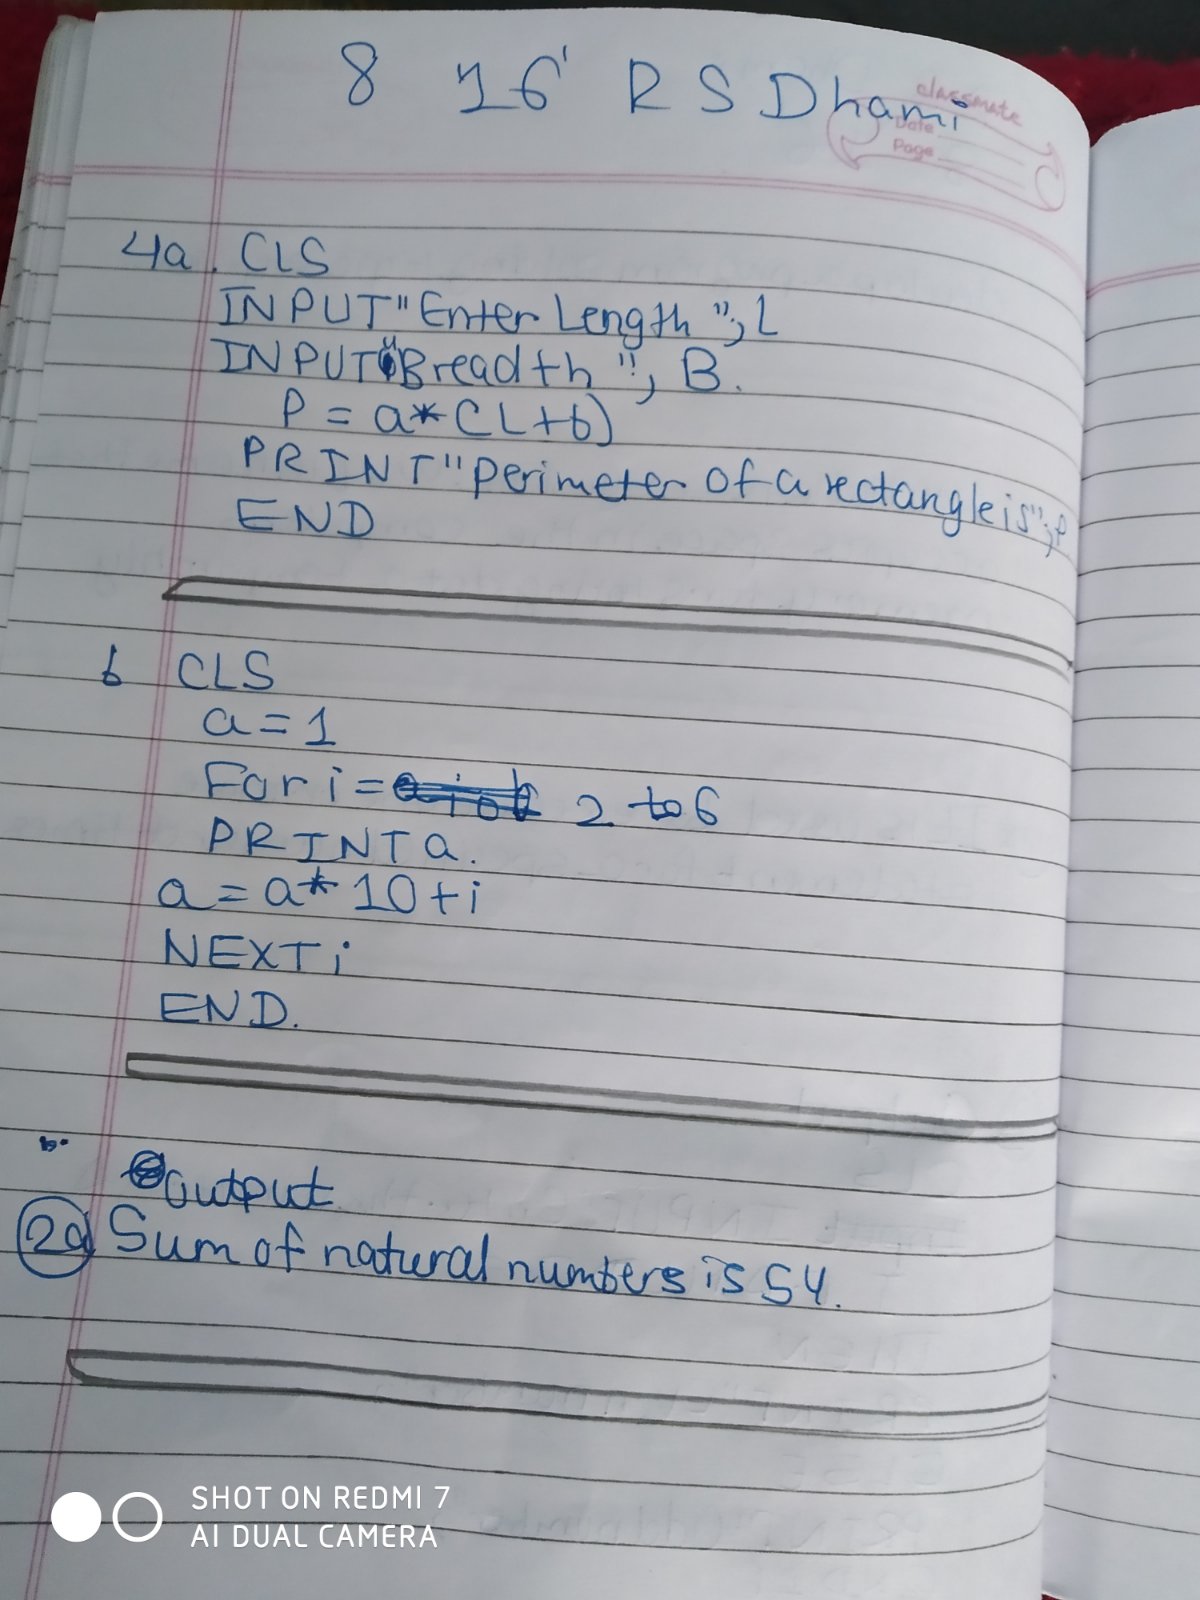 8 16' R S Dhami
classmate
Date
Page
4a. CLS
INPUT "Enter Length "; L
INPUT "Breadth "; B.
P = a* (L+b)
PRINT "Perimeter of a rectangle is"; P
END
b CLS
a = 1
For i = 2 to 6
PRINT a.
a = a* 10 + i
NEXT i
END.
b.
output
2a Sum of natural numbers is 54.
SHOT ON REDMI 7
AI DUAL CAMERA